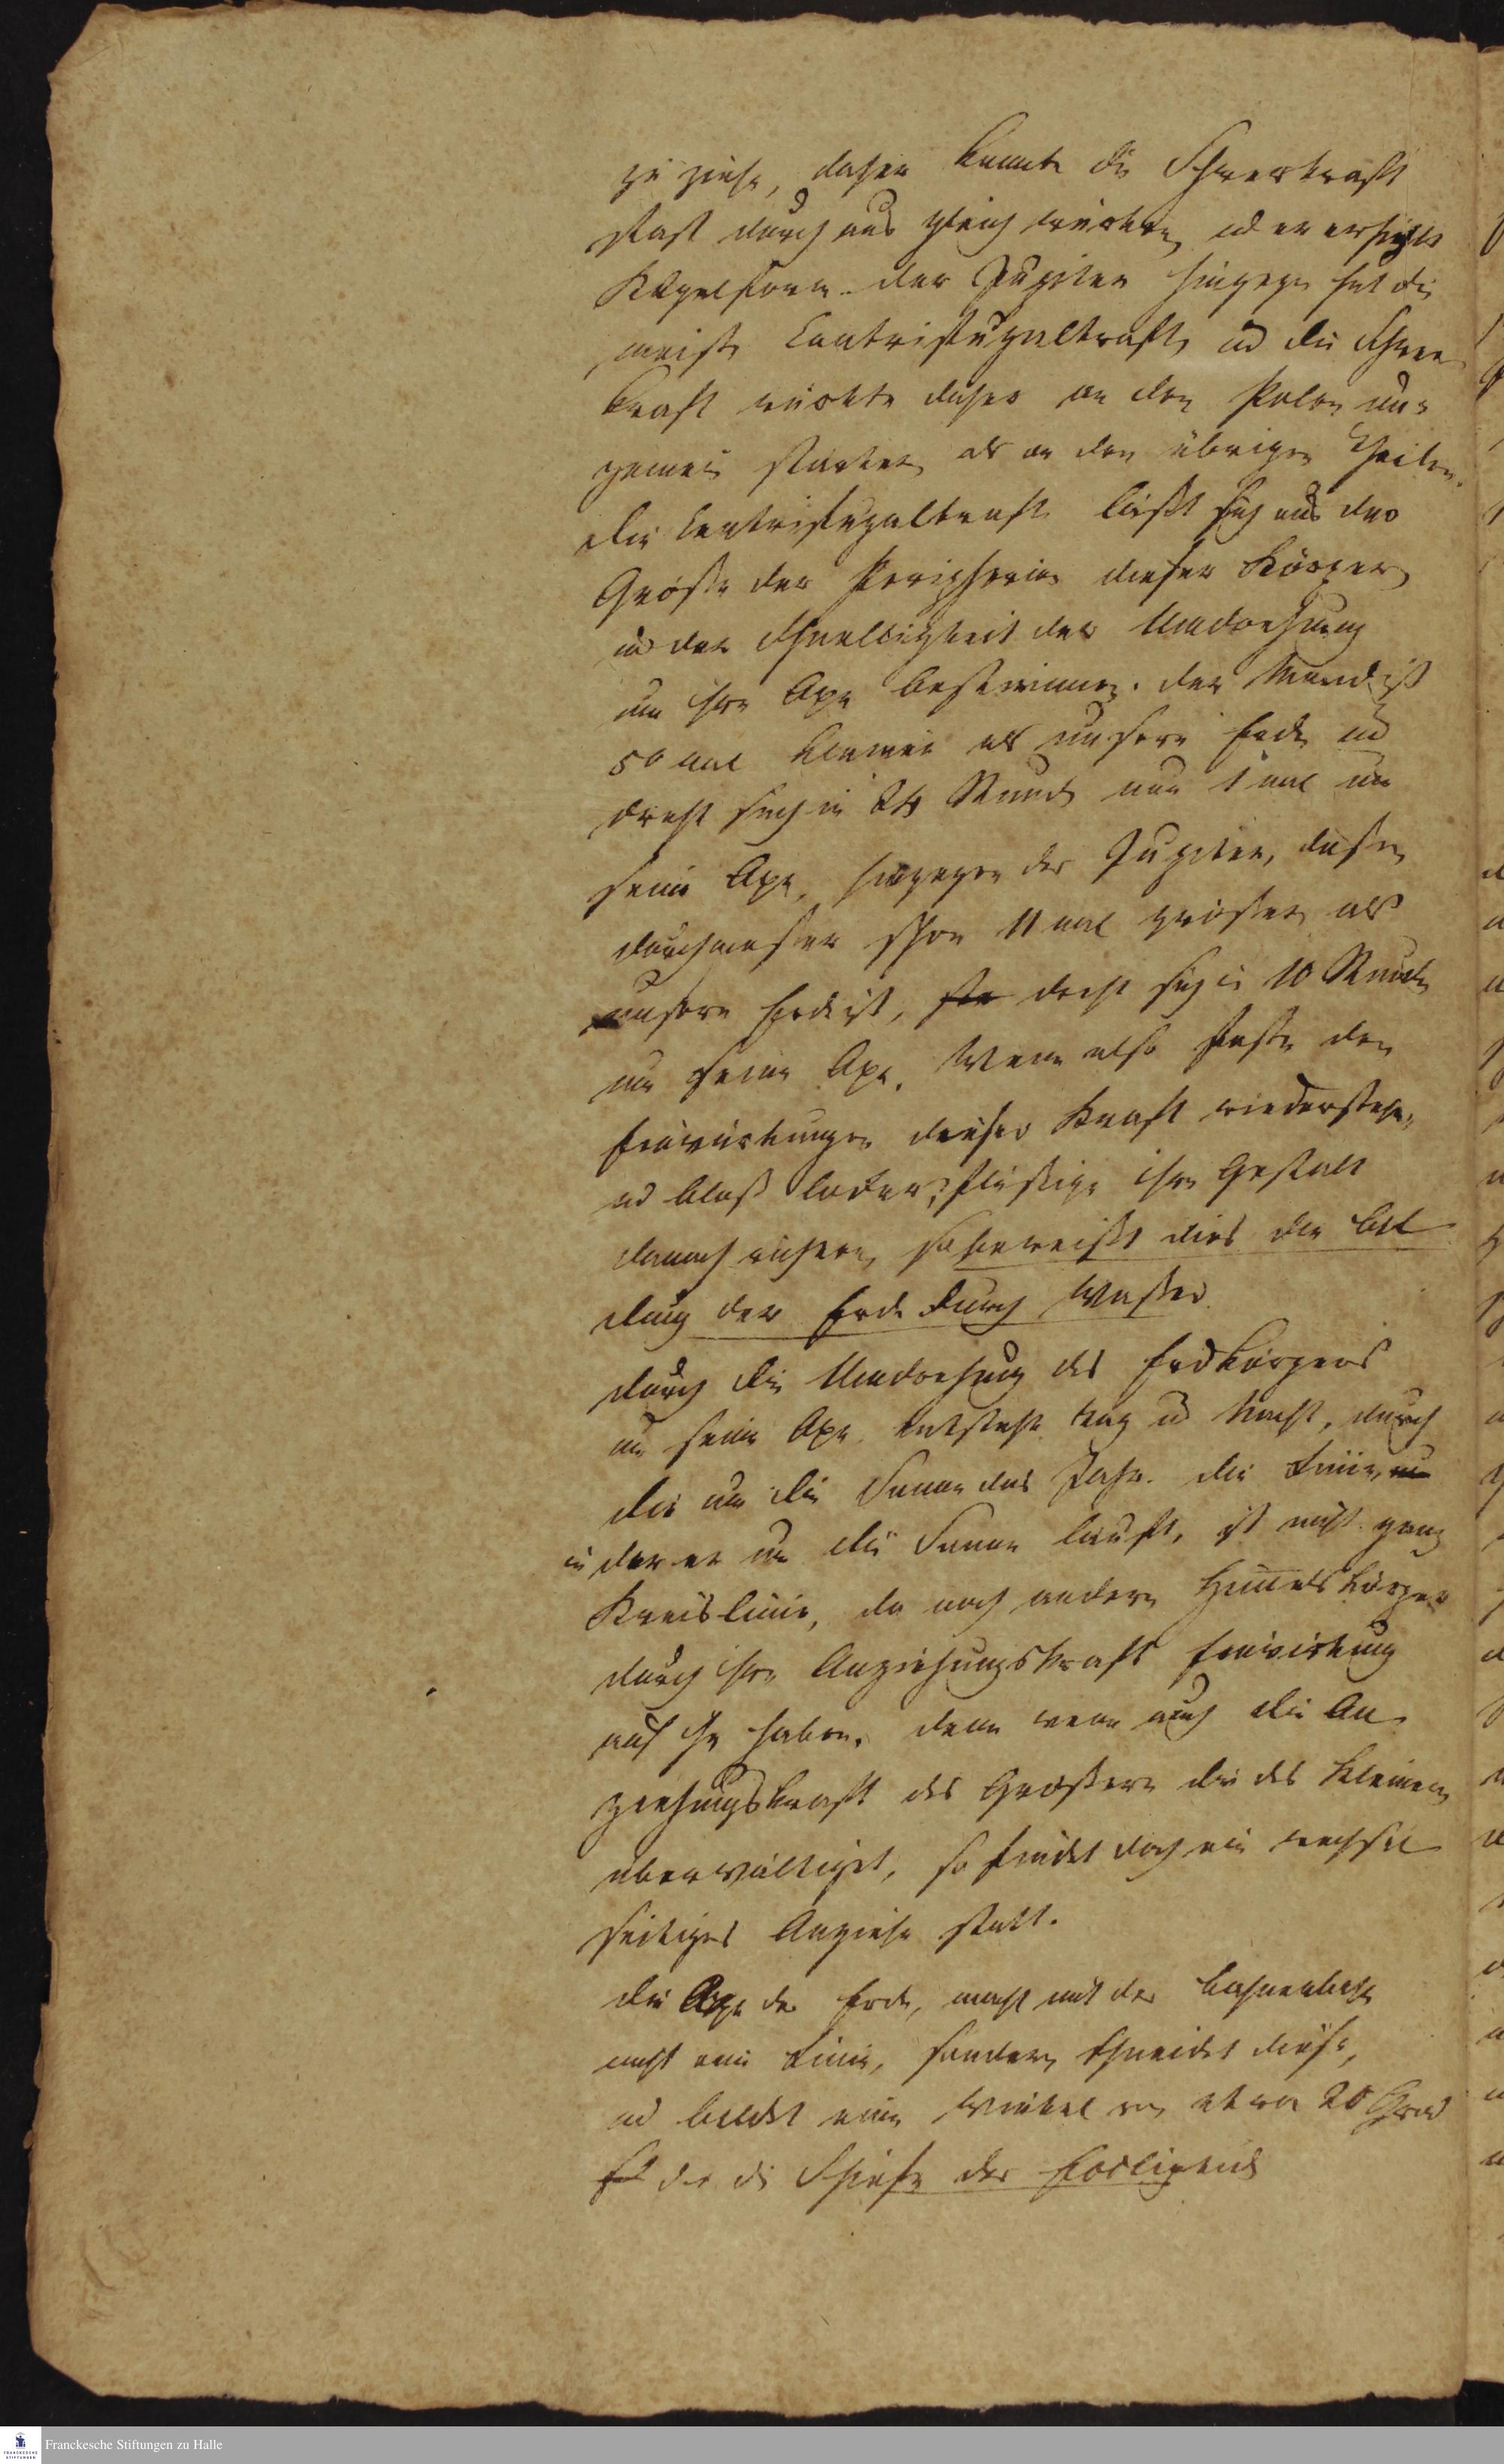 zu ziehn, daher konnte die Schwerkraft
fast durchaus gleich wirken, u er erhielt
Kugelform. der Jupiter hingegen hat die
meiste Centrifugalkraft, ud die Schwer
kraft wirkte daher an den Polen un-
gemein starker, als an den übrigen Theilen.
die Centrifugalkraft läßt sich aus der
Größe der Peripherie dieser Körper
ud der Schnelligkeit der Umdrehung
um ihre Axe bestimmen. der Mond ist
50 mal kleiner als unsere Erde ud
dreht sich in 24 Stund nur 1 mal um
seine Axe, hingegen der Jupiter, dessen
durchmesser schon 11 mal größer als
unsere Erde ist, dreht sich in 10 Stunden
um seine Axe. Wenn also feste den
Einwirkungen dieser Kraft wiederstehen,
ud bloß lockere, flüßige ihre Gestalt
danach ändern, so beweißt dies die bil
dung der Erde durch Wasser.
durch die Umdrehung des Erdkörpers
um seine Axe entsteht tag ud Nacht, durch
die um die Sonne das Jahr. die Linie,
in der er um die Sonne läuft, ist nicht ganz
Kreislinie, da noch andere Himmelskörper
durch ihre Anziehungskraft Einwirkung
auf ihn haben. denn wenn auch die An
ziehungskraft des Größern die des kleinern
überwältiget, so findet doch ein wechsel
seitiges Anziehn statt.
die Axe der Erde, macht mit der
nicht eine Linie, sondern schneidet diese,
ud bildet einen Winkel von etwa 20 Grad
die Schiefe der Ecliptik
Franckesche Stiftungen zu Halle